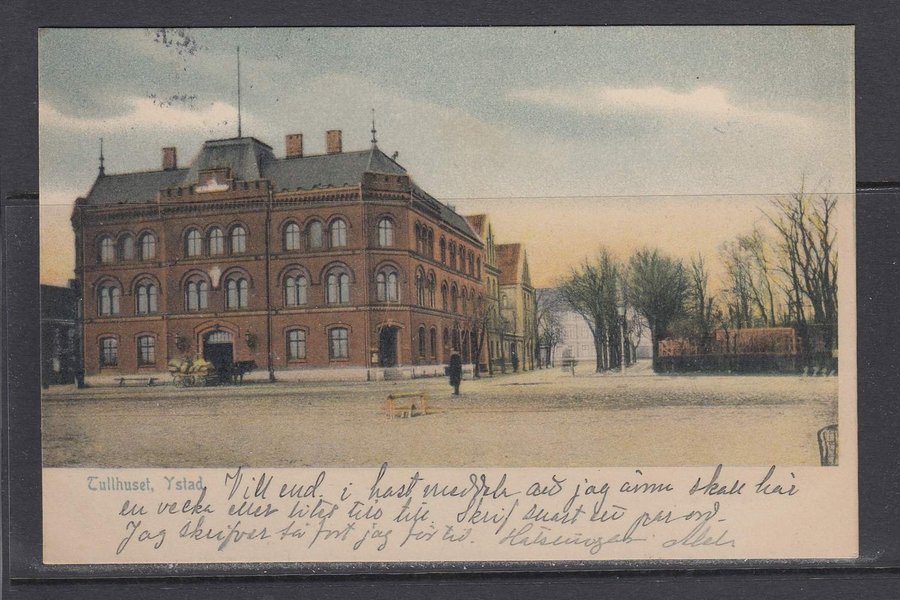 Tullhuset, Ystad.
Vill end. i hast meddela att jag ännu skall här
en vecka eller litet till. Skrif snart ett par ord.
Jag skrifver så fort jag får tid. Helsningar